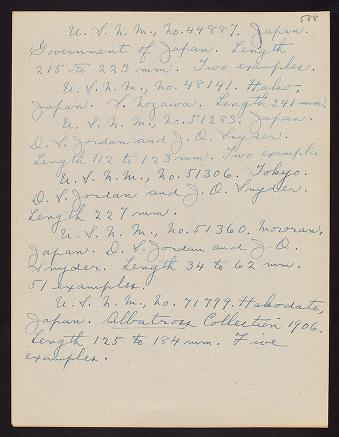 588
U. S. N. M., No. 44887. Japan.
Government of Japan. Length
215 to 223 mm. Two examples.
U. S. N. M., No. 48141. Hako,
Japan. S. Nozawa. Length 241 mm.
U. S. N. M., No. 51283. Japan.
D. S. Jordan and J. O. Snyder.
Length 112 to 123 mm. Two examples
U. S. N. M., No. 51306. Tokyo.
D. S. Jordan and J. O. Snyder.
Length 227 mm.
U. S. N. M., No. 51360.
Japan. D. S. Jordan and J. O.
Snyder. Length 34 to 62 mm.
51 examples.
U. S. N. M., No. 71799. Hakodate,
Japan. Albatross Collection 1906.
Length 125 to 184 mm. Five
examples.